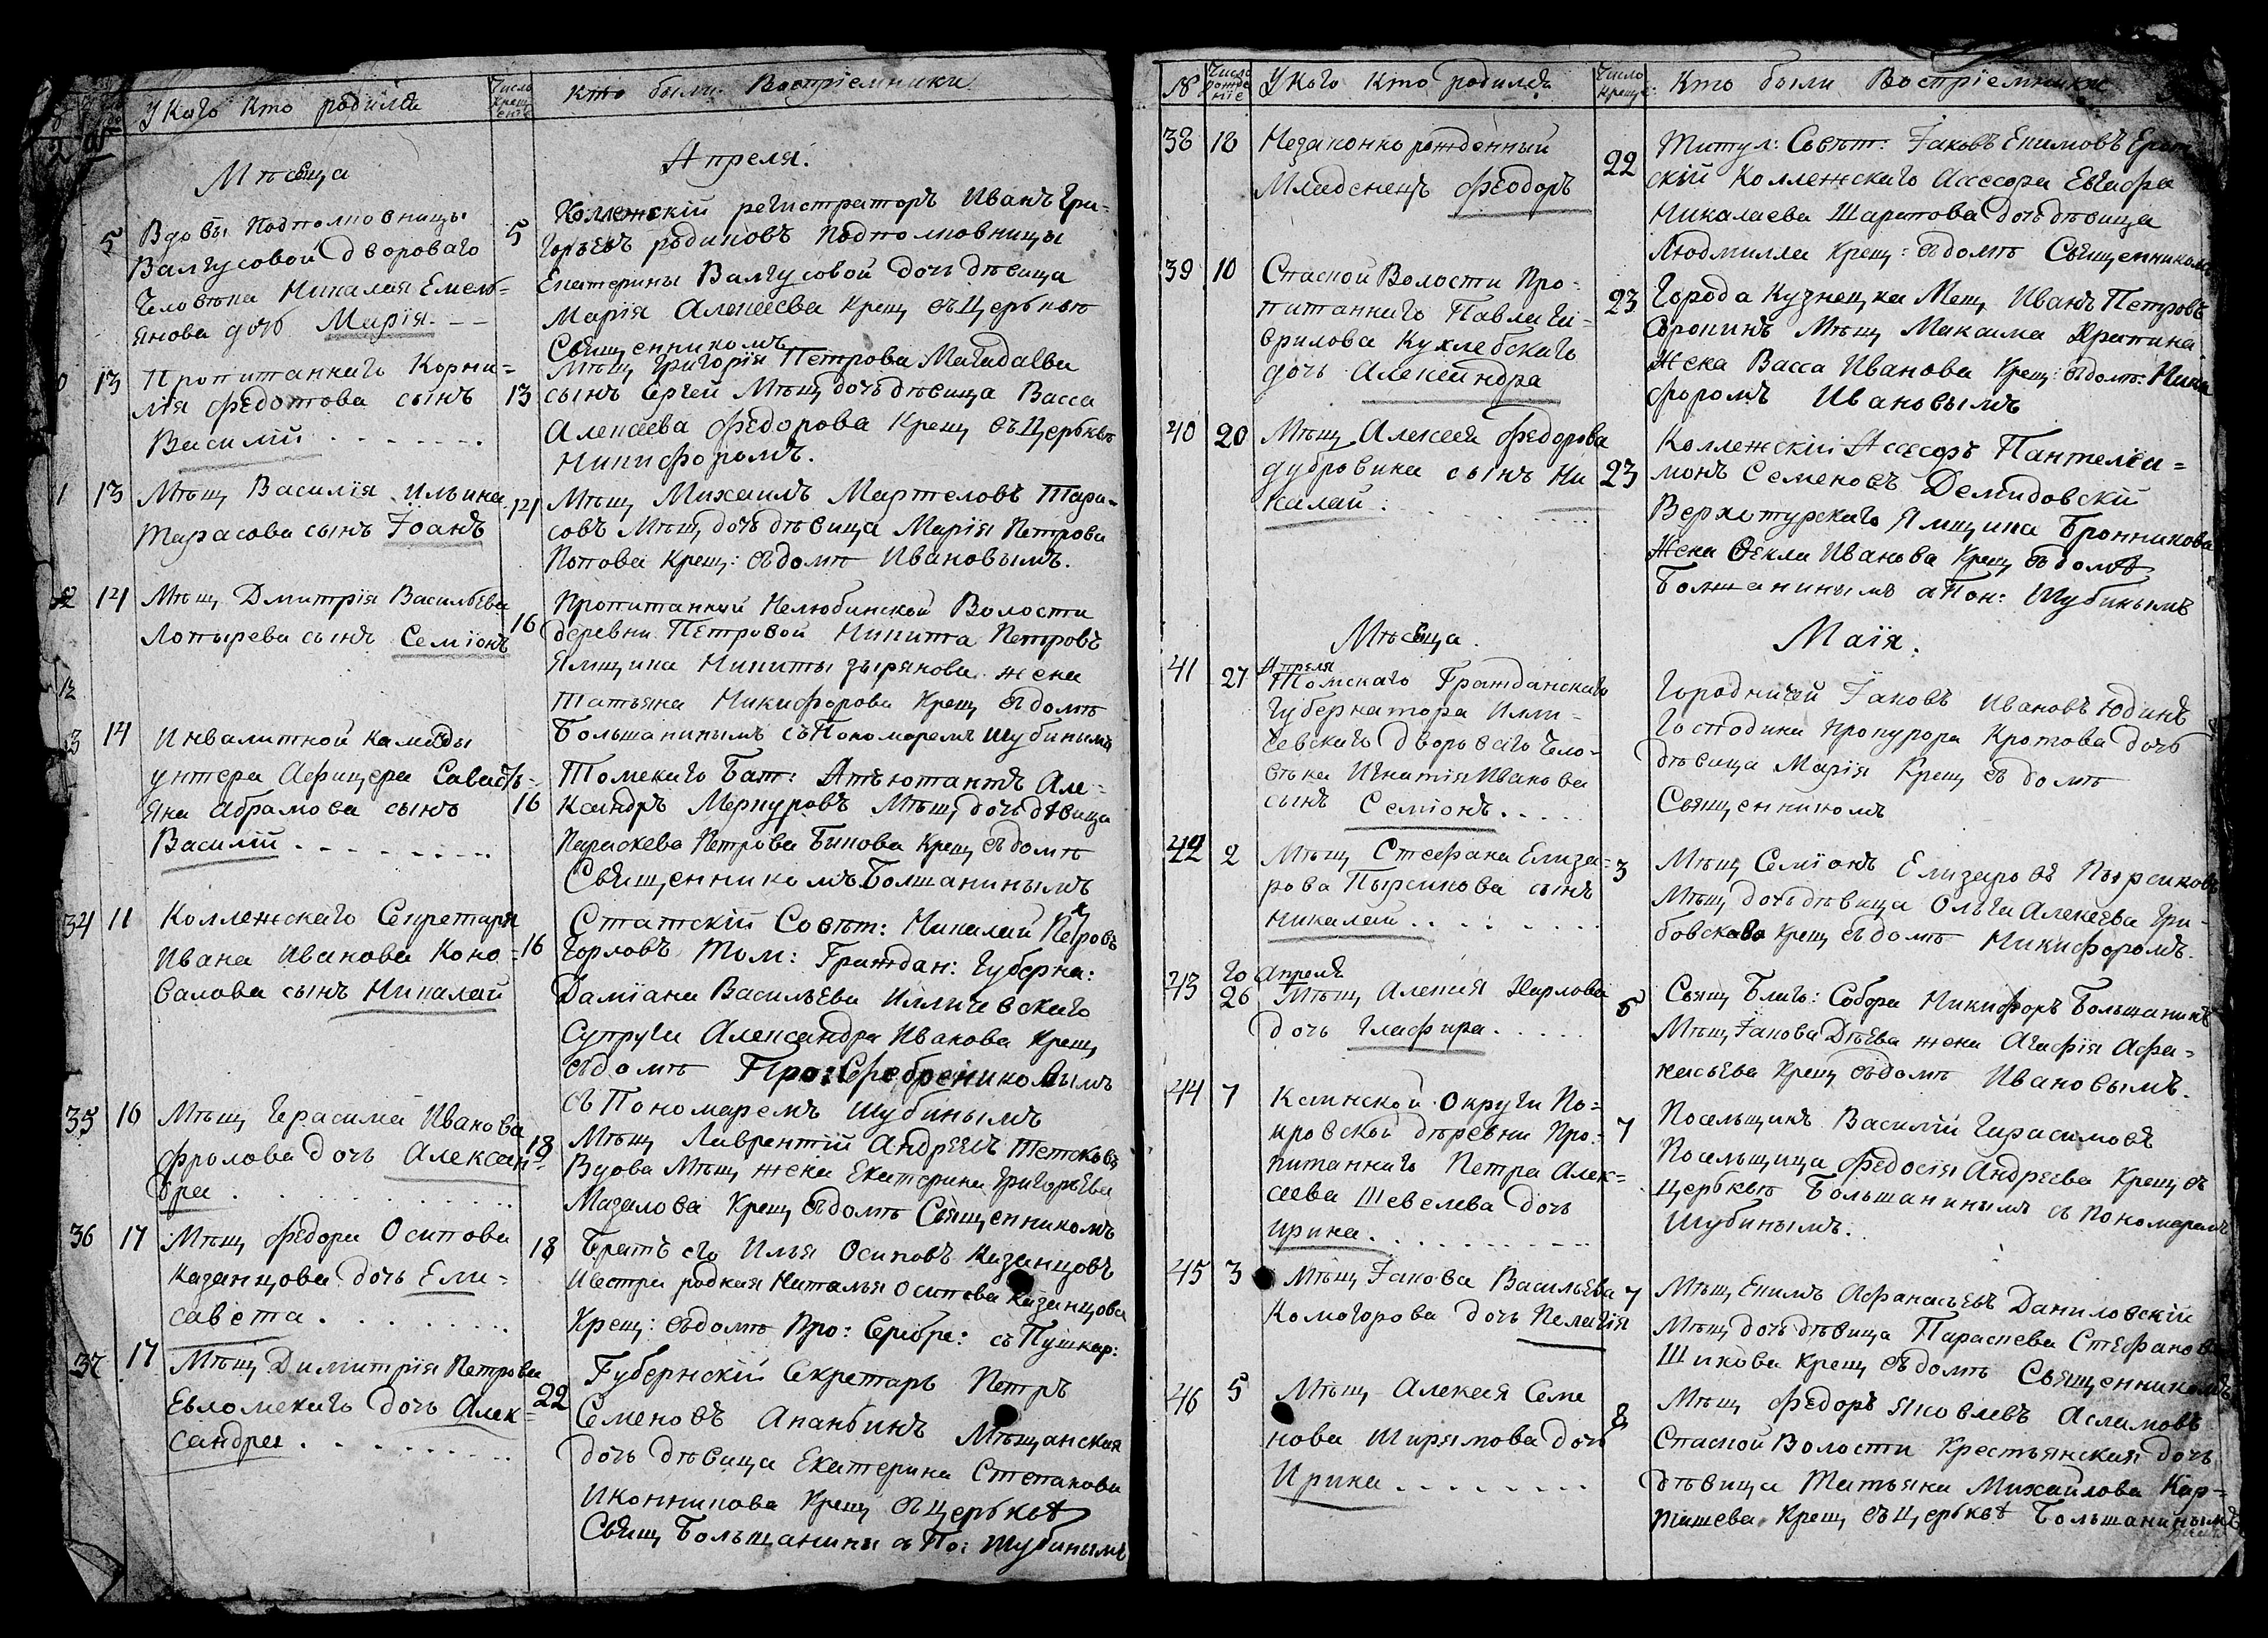 У Каго Кто родился
Число Крещеніе
кто были Воспріемники
Мѣсеца
Апреля.
5
Вдовы Подполковницы
Валгусовой двороваго
Человѣка Николая Емель=
янова дочь Марія.
5
Коллежскій регистраторъ Иванъ Гри=
горьевъ родиковъ Подполковницы
Екатерины Валгусовой дочь дѣвица
Марія Алексеева Крещ въ Церькве
Священникомъ
0 13
Пропитаннаго Корни=
лія Федотова сынъ
Василій
13
Мѣщ Григорія Петрова
сынъ Сергей Мѣщ дочь дѣвица Васса
Алексеева Федорова Крещ въ Церькве
Никифоромъ.
1 13
Мѣщ Василія Ильина
Тарасова сынъ Іоанъ
14
Мѣщ Михаилъ Тара=
совъ Мѣщ дочь дѣвица Марія Петрова
Попова Крещ: въ доме Ивановымъ.
2 14
Мѣщ Дмитрія Васильева
Лопырева сынъ Семіонъ
16
Пропитанный Нелюбинской Волости
деревни Петровой Никита Петровъ
Ямщика Никиты Зырянова жена
Татьяна Никифорова Крещ въ доме
Большанинымъ съ Пономаремъ Шубинымъ
12
3 14
Инвалитной каманды
унтера Афицера Савасть=
яна Абрамова сынъ
Василій
16
Томскаго Бат: Атъютантъ Але=
ксандръ Меркуровъ Мѣщ дочь дѣвица
Параскева Петрова Быкова Крещ въ доме
Священникомъ Болшанинымъ
34 11
Коллежскаго Секретаря
Ивана Иванова Коно=
валова сынъ Николай
16
Статскій Совѣт: Николай Петровъ
Горловъ Том: Граждан: Губерна:
Даміана Васильева Илличевскаго
Супруга Александра Иванова Крещ
въ доме Про: Серебрениковымъ
съ Пономаремъ Шубинымъ
35 16
Мѣщ Герасима Иванова
Фролова дочь Алексан=
дра
18
Мѣщ Лаврентій Андреевъ
Вдова Мѣщ жена Екатерина Григорьева
Мазалова Крещ въ доме Священникомъ
36 17
Мѣщ Федора Осипова
Казанцова дочь Ели=
савета
18
Братъ его Илья Осиповъ Казанцовъ
и сестра родная Наталья Осипова Казанцова
Крещ: въ доме Про: Серебре: съ Пушкар:
37 17
Мѣщ Димитрія Петрова
Евломскаго дочь Алек=
сандра
22
Губернскій Секретарь Петръ
Семеновъ Ананьинъ Мѣщанская
дочь дѣвица Екатерина Степанова
Иконникова Крещ въ церькве
Свящ Большанины а По: Шубинымъ
№
Число рожденіе
У Каго Кто родился
Число Крещ:
Кто были Воспріемники
38 18
Незаконно рожденный
Младенецъ Феодоръ
22
Титул: Совѣт: Іаковъ Екимовъ
скій Коллежскаго Асесора Евграфа
Николаева Шарапова дочь дѣвица
Людмилла Крещ: въ доме Священникомъ
39 10
Спаской Волости Про=
питаннаго Павла Га=
врилова Кухлебскаго
дочь Александра
23
Города Кузнецка Мещ Иванъ Петровъ
Соропинъ Мѣщ Максима
жена Васса Иванова Крещ: въ доме: Ники
форомъ Ивановымъ
40 20
Мѣщ Алексея Федорова
Дубровина сынъ Ни
калай
23
Коллежскій Асесоръ Пантелеи=
монъ Семеновъ Демидовскій
Верхотурскаго Ямщика Бронникова
жена Фекла Иванова Крещ въ доме
Болшанинымъ а Пон: Шубинымъ
Мѣсеца.
Маія.
41 27
Апреля
Томскаго Гражданскаго
Губернатора Илли=
чевскаго двороваго Чело=
века Игнатія Иванова
сынъ Семіонъ
Городничей Іаковъ Ивановъ Юдинъ
Господина Прокурора Кротова дочь
дѣвица Марія Крещ въ доме
Священникомъ
42 2
Мѣщ Стефана Елиза=
рова Пырсикова сынъ
Николай
3
Мѣщ Семіонъ Елизаровъ Пырсиковъ
Мѣщ дочь дѣвица Ольга Алексева Гри=
бовскава Крещ въ доме Никифоромъ.
43 26
Апреля
Мѣщ Алексія Карлова
дочь Глафира
5
Свящ Благ: Собора Никифоръ Большанинъ
Мѣщ Іакова Дѣева жена Агафія Афа=
насьева Крещ въ доме Ивановымъ.
44 7
Каинской Округи По=
кровской деревни Про=
питаннаго Петра Алек=
сеева Шевелева дочь
Ирина
7
Посельщикъ Василій Гарасимовъ
Посельщица Федосія Андреева Крещ въ
церькве Большанинымъ съ Пономаремъ
Шубинымъ.
45 3
Мѣщ Іакова Васильева
Комогорова дочь Пелагія
7
Мѣщ Екимъ Афанасьевъ Даниловскій
Мѣщ дочь дѣвица Параскева Стефанова
Шикова Крещ въ доме Священникомъ
46 5
Мѣщ Алексея Семе
нова Ширямова дочь
Ирина
8
Мѣщ Федоръ Яковлевъ Асламовъ
Спаской Волости Крестьянская дочь
дѣвица Татьяна Михайлова Кар=
ташева Крещ въ Церькве Большанинымъ